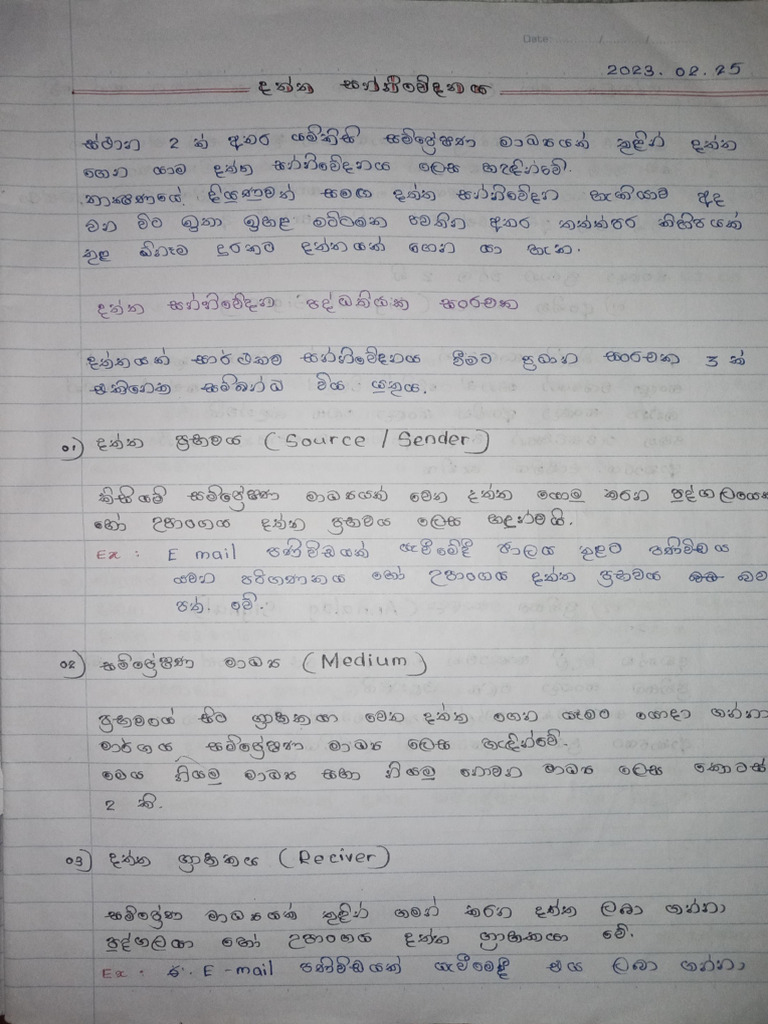 Date: ........./........./.........
2023. 02. 25
දත්ත සන්නිවේදනය
ස්ථාන 2 ක් අතර යම්කිසි සම්ප්‍රේෂණ මාධ්‍යයක් තුළින් දත්ත
ගෙන යාම දත්ත සන්නිවේදනය ලෙස හැඳින්වේ.
තාක්ෂණයේ දියුණුවත් සමඟ දත්ත සන්නිවේදන හැකියාව අද
වන විට ඉතා ඉහළ මට්ටමක පවතින අතර තත්ත්පර කිහිපයක්
තුළ ඕනෑම දුරකට දත්තයක් ගෙන යා හැක.
දත්ත සන්නිවේදන පද්ධතියක සංරචක
දත්තයක් සාර්ථකව සන්නිවේදනය වීමට ප්‍රධාන සංරචක 3 ක්
එකිනෙක සම්බන්ධ විය යුතුය.
01) දත්ත ප්‍රභවය (Source / Sender)
කිසියම් සම්ප්‍රේෂණ මාධ්‍යයක් වෙත දත්ත යොමු කරන පුද්ගලයෙක්
හෝ උපාංගය දත්ත ප්‍රභවය ලෙස හඳුන්වයි.
Ex : E mail පණිවිඩයක් යැවීමේදී ජාලය තුළට පණිවිඩය
යවන පරිගණකය හෝ උපාංගය දත්ත ප්‍රභවය බවට
පත් වේ.
02) සම්ප්‍රේෂණ මාධ්‍ය (Medium)
ප්‍රභවයේ සිට ග්‍රාහකයා වෙත දත්ත ගෙන යෑමට යොදා ගන්නා
මාර්ගය සම්ප්‍රේෂණ මාධ්‍ය ලෙස හැඳින්වේ.
මෙය නියමු මාධ්‍ය සහා නියමු නොවන මාධ්‍ය ලෙස කොටස්
2 කි.
03) දත්ත ග්‍රාහකය (Reciver)
සම්ප්‍රේෂණ මාධ්‍යයක් තුළින් ගමන් කරන දත්ත ලබා ගන්නා
පුද්ගලයා හෝ උපාංගය දත්ත ග්‍රාහකයා වේ.
Ex : E-mail පණිවිඩයක් යැවීමේදී එය ලබා ගන්නා